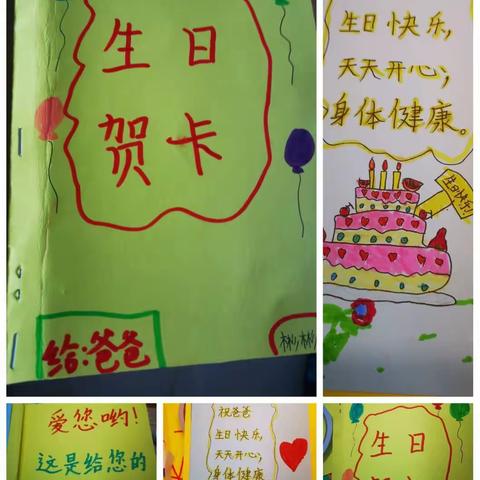 生日
贺卡
给:爸爸
彬彬
生日快乐,
天天开心;
身体健康。
生日快乐!
爱您哟!
这是给您的
祝爸爸
生日快乐,
天天开心;
身体健康
生日